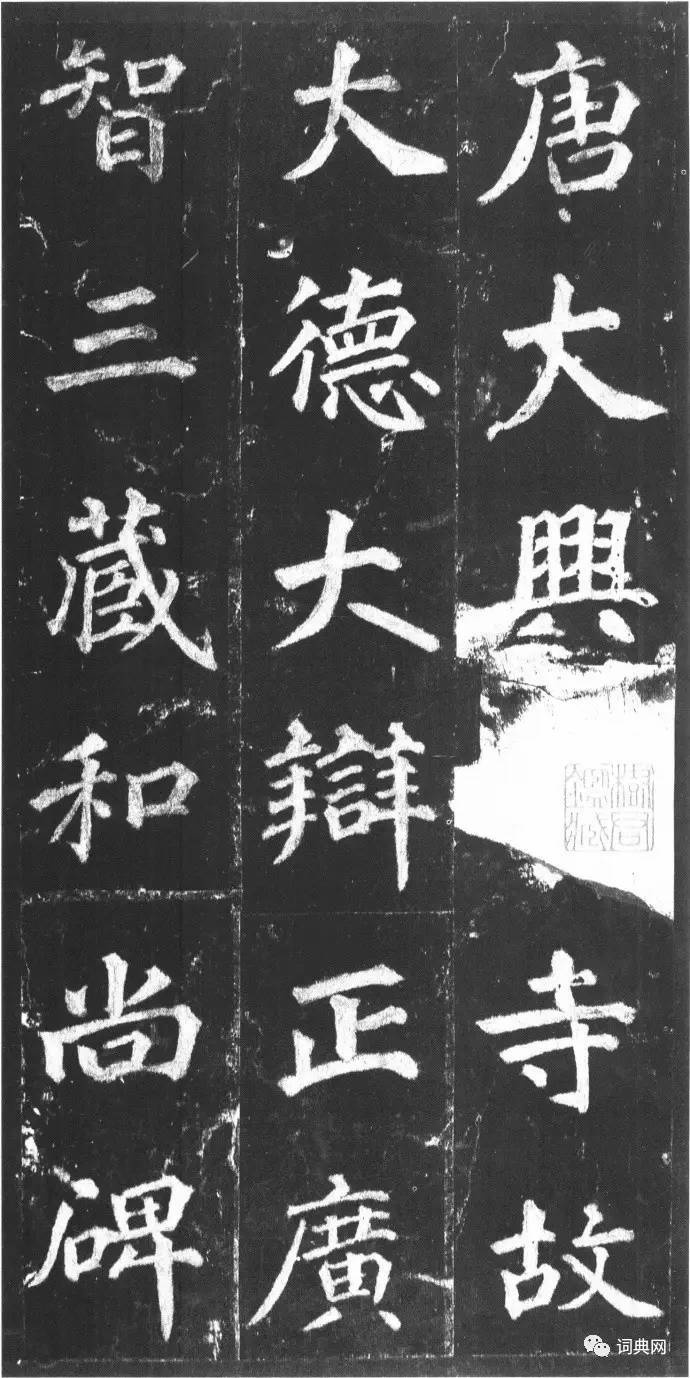 唐大興寺故
大德大辯正廣
智三藏和尚碑
词典网